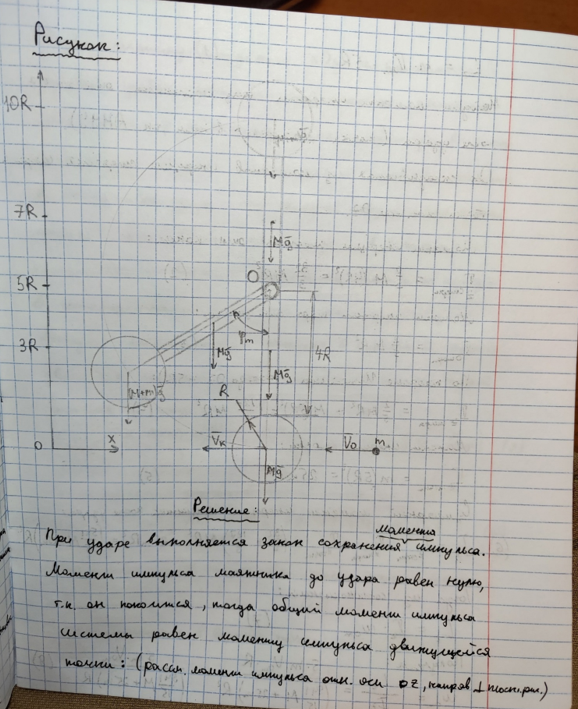 Рисунок:
10R
7R
Mg
O
5R
φm
4R
3R
Mg
Mg
(M+m)g
R
x
Vк
V₀
m
0
Mg
Решение:
При ударе выполняется закон сохранения момента импульса.
Момент импульса маятника до удара равен нулю,
т.к. он покоится, тогда общий момент импульса
системы равен моменту импульса движущейся
точки: (рассм. момент импульса отн. оси OZ, направ ⊥ плоск. рис.)